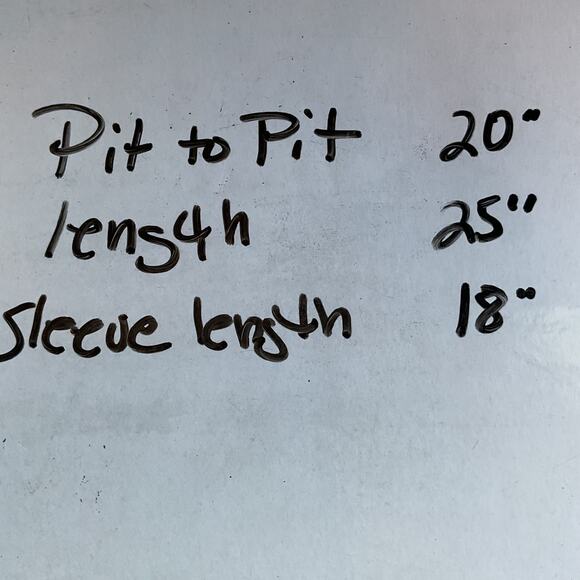 Pit to Pit 20"
length 25"
Sleeve length 18"